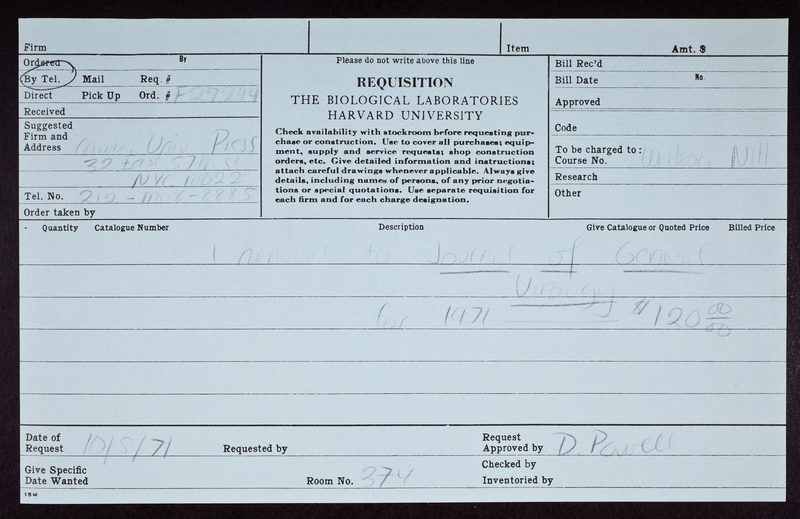 Firm
Item
Amt. $
Ordered
By
By Tel. Mail Req. #
Direct Pick Up Ord. # F27299
Received
Suggested
Firm and
Address
Univ. Press
32 East 57th St
NYC 10022
Tel. No. 212-MU8-8885
Order taken by
Please do not write above this line
REQUISITION
THE BIOLOGICAL LABORATORIES
HARVARD UNIVERSITY
Check availability with stockroom before requesting pur-
chase or construction. Use to cover all purchases; equip-
ment, supply and service requests; shop construction
orders, etc. Give detailed information and instructions;
attach careful drawings whenever applicable. Always give
details, including names of persons, of any prior negotia-
tions or special quotations. Use separate requisition for
each firm and for each charge designation.
Bill Rec'd
Bill Date No.
Approved
Code
To be charged to:
Course No. Watson NIH
Research
Other
Quantity Catalogue Number Description Give Catalogue or Quoted Price Billed Price
1 renewal to Journal of General
Virology
for 1971 $120 00/00
Date of
Request 10/5/71
Requested by
Request
Approved by D. Powell
Give Specific
Date Wanted
Room No. 374
Checked by
Inventoried by
15M